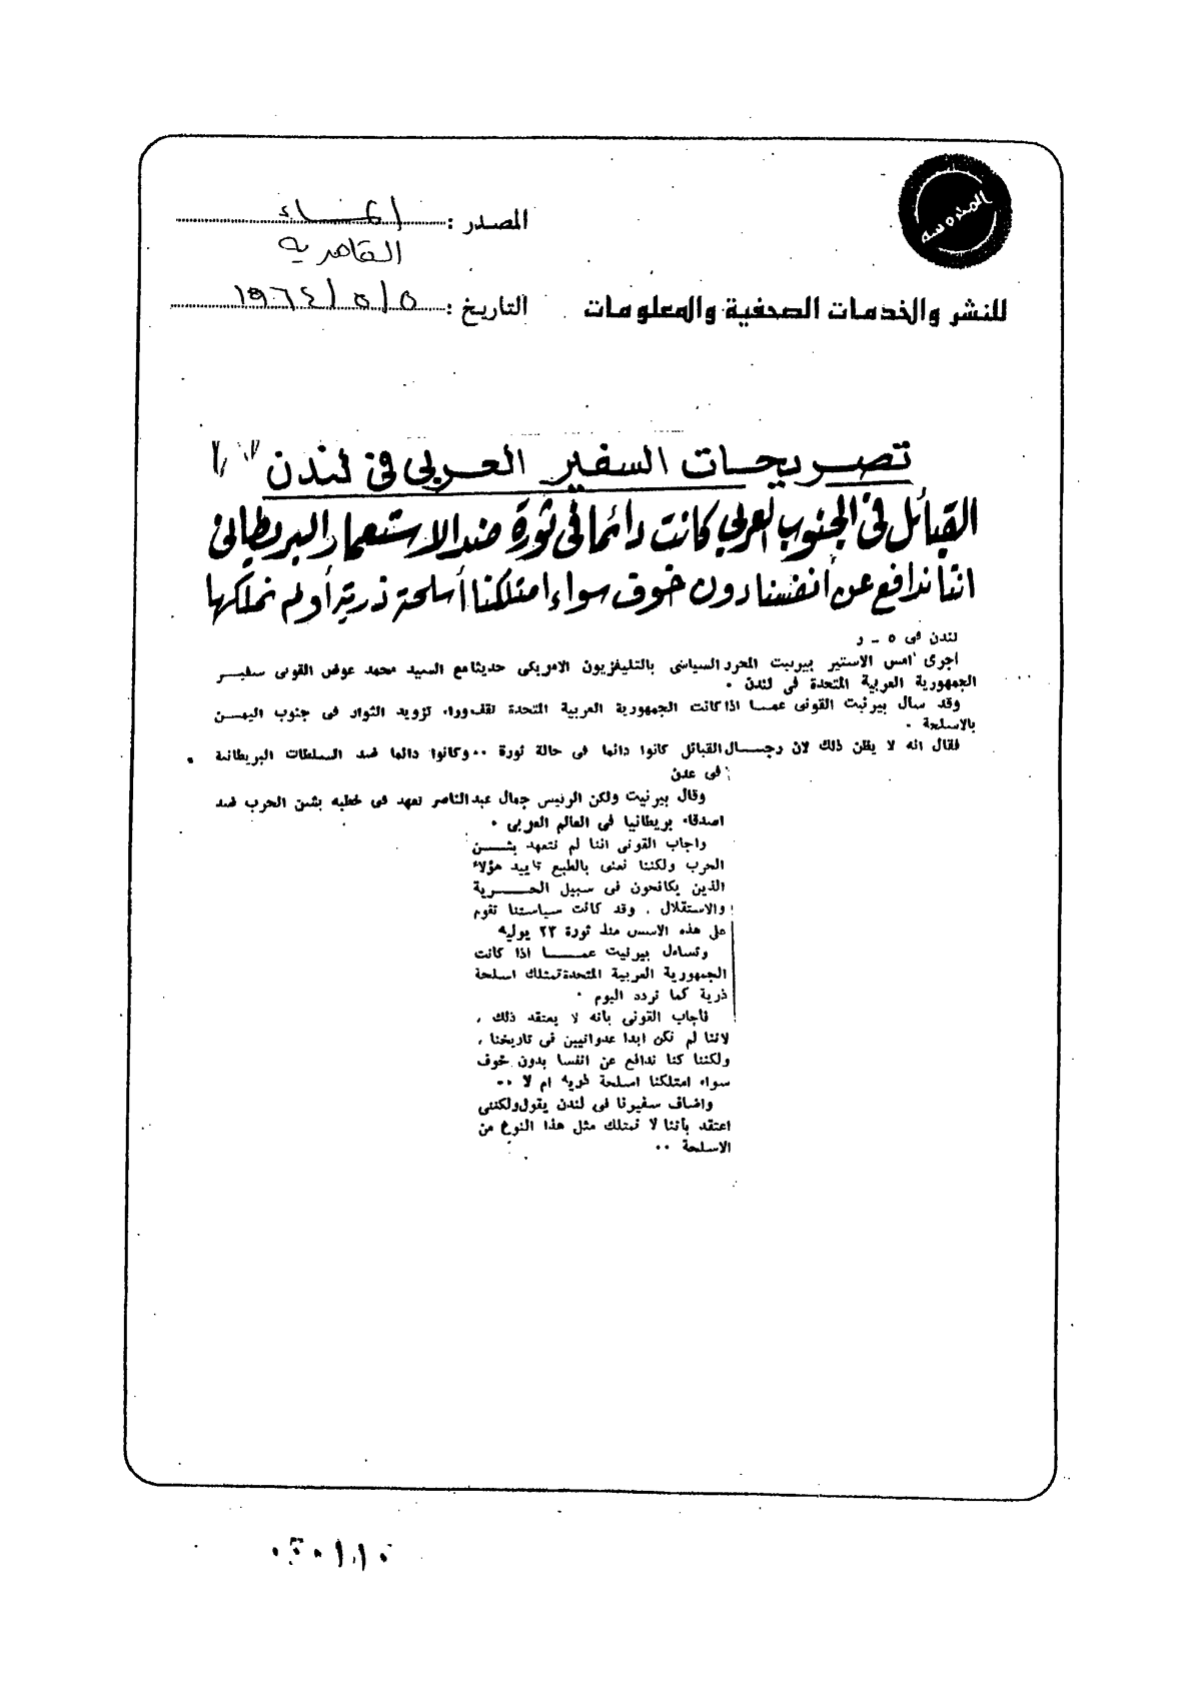 المحروسة
المصدر : المساء
القاهرية
للنشر والخدمات الصحفية والمعلومات
التاريخ : ٥/٥/١٩٦٤
تصريحات السفير العربى فى لندن
القبائل فى الجنوب العربى كانت دائما فى ثورة ضد الاستعمار البريطانى
اننا ندافع عن أنفسنا دون خوف سواء امتلكنا أسلحة ذرية أو لم نملكها
لندن فى ٥ ـ ر
اجرى امس الاستير بيرنيت المحرر السياسى بالتليفزيون الامريكى حديثا مع السيد محمد عوض القونى سفيـــر
الجمهورية العربية المتحدة فى لندن .
وقد سال بيرنيت القونى عمــا اذا كانت الجمهورية العربية المتحدة تقف وراء تزويد الثوار فى جنوب اليمــن
بالاسلحة .
فقال انه لا يظن ذلك لان رجــال القبائل كانوا دائما فى حالة ثورة ..وكانوا دائما ضد السلطات البريطانية
فى عدن
وقال بيرنيت ولكن الرئيس جمال عبد الناصر تعهد فى خطبه بشن الحرب ضد
اصدقاء بريطانيا فى العالم العربى .
واجاب القونى اننا لم نتعهد بشـــن
الحرب ولكننا نعنى بالطبع تاييد هؤلاء
الذين يكافحون فى سبيل الحــــرية
والاستقلال . وقد كانت سياستنا تقوم
على هذه الاسس منذ ثورة ٢٣ يوليه
وتساءل بيرنيت عمـــا اذا كانت
الجمهورية العربية المتحدة تمتلك اسلحة
ذرية كما تردد اليوم .
فاجاب القونى بانه لا يعتقد ذلك ،
لاننا لم نكن ابدا عدوانيين فى تاريخنا ،
ولكننا كنا ندافع عن انفسنا بدون خوف
سواء امتلكنا اسلحة ذريه ام لا ..
واضاف سفيرنا فى لندن يقول ولكننى
اعتقد باننا لا نمتلك مثل هذا النوع من
الاسلحة ..